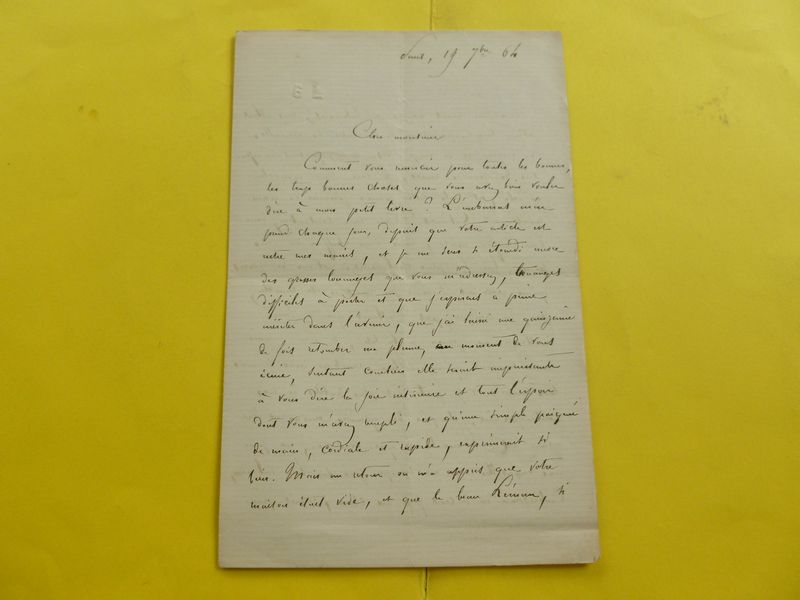 19 7bre 64
Cher monsieur
Comment vous remercier pour toutes les bonnes,
les trop bonnes choses que vous avez bien voulu
dire à mon petit livre ? L'embarras même
prend chaque jour, depuis que votre article est
entre mes mains, et je me sens si étourdi encore
des grosses louanges que vous m'adressez, louanges
difficiles à porter et que j'espérais à peine
mériter dans l'avenir, que j'ai laissé une quinzaine
de fois retomber ma plume, au moment de vous
écrire, sentant combien elle serait impuissante
à vous dire la joie intérieure et tout l'espoir
dont vous m'avez rempli, et qu'une simple poignée
de main, cordiale et rapide, exprimerait si
bien. Mais au retour on m'a appris que votre
maison était vide, et que le beau Léman, si